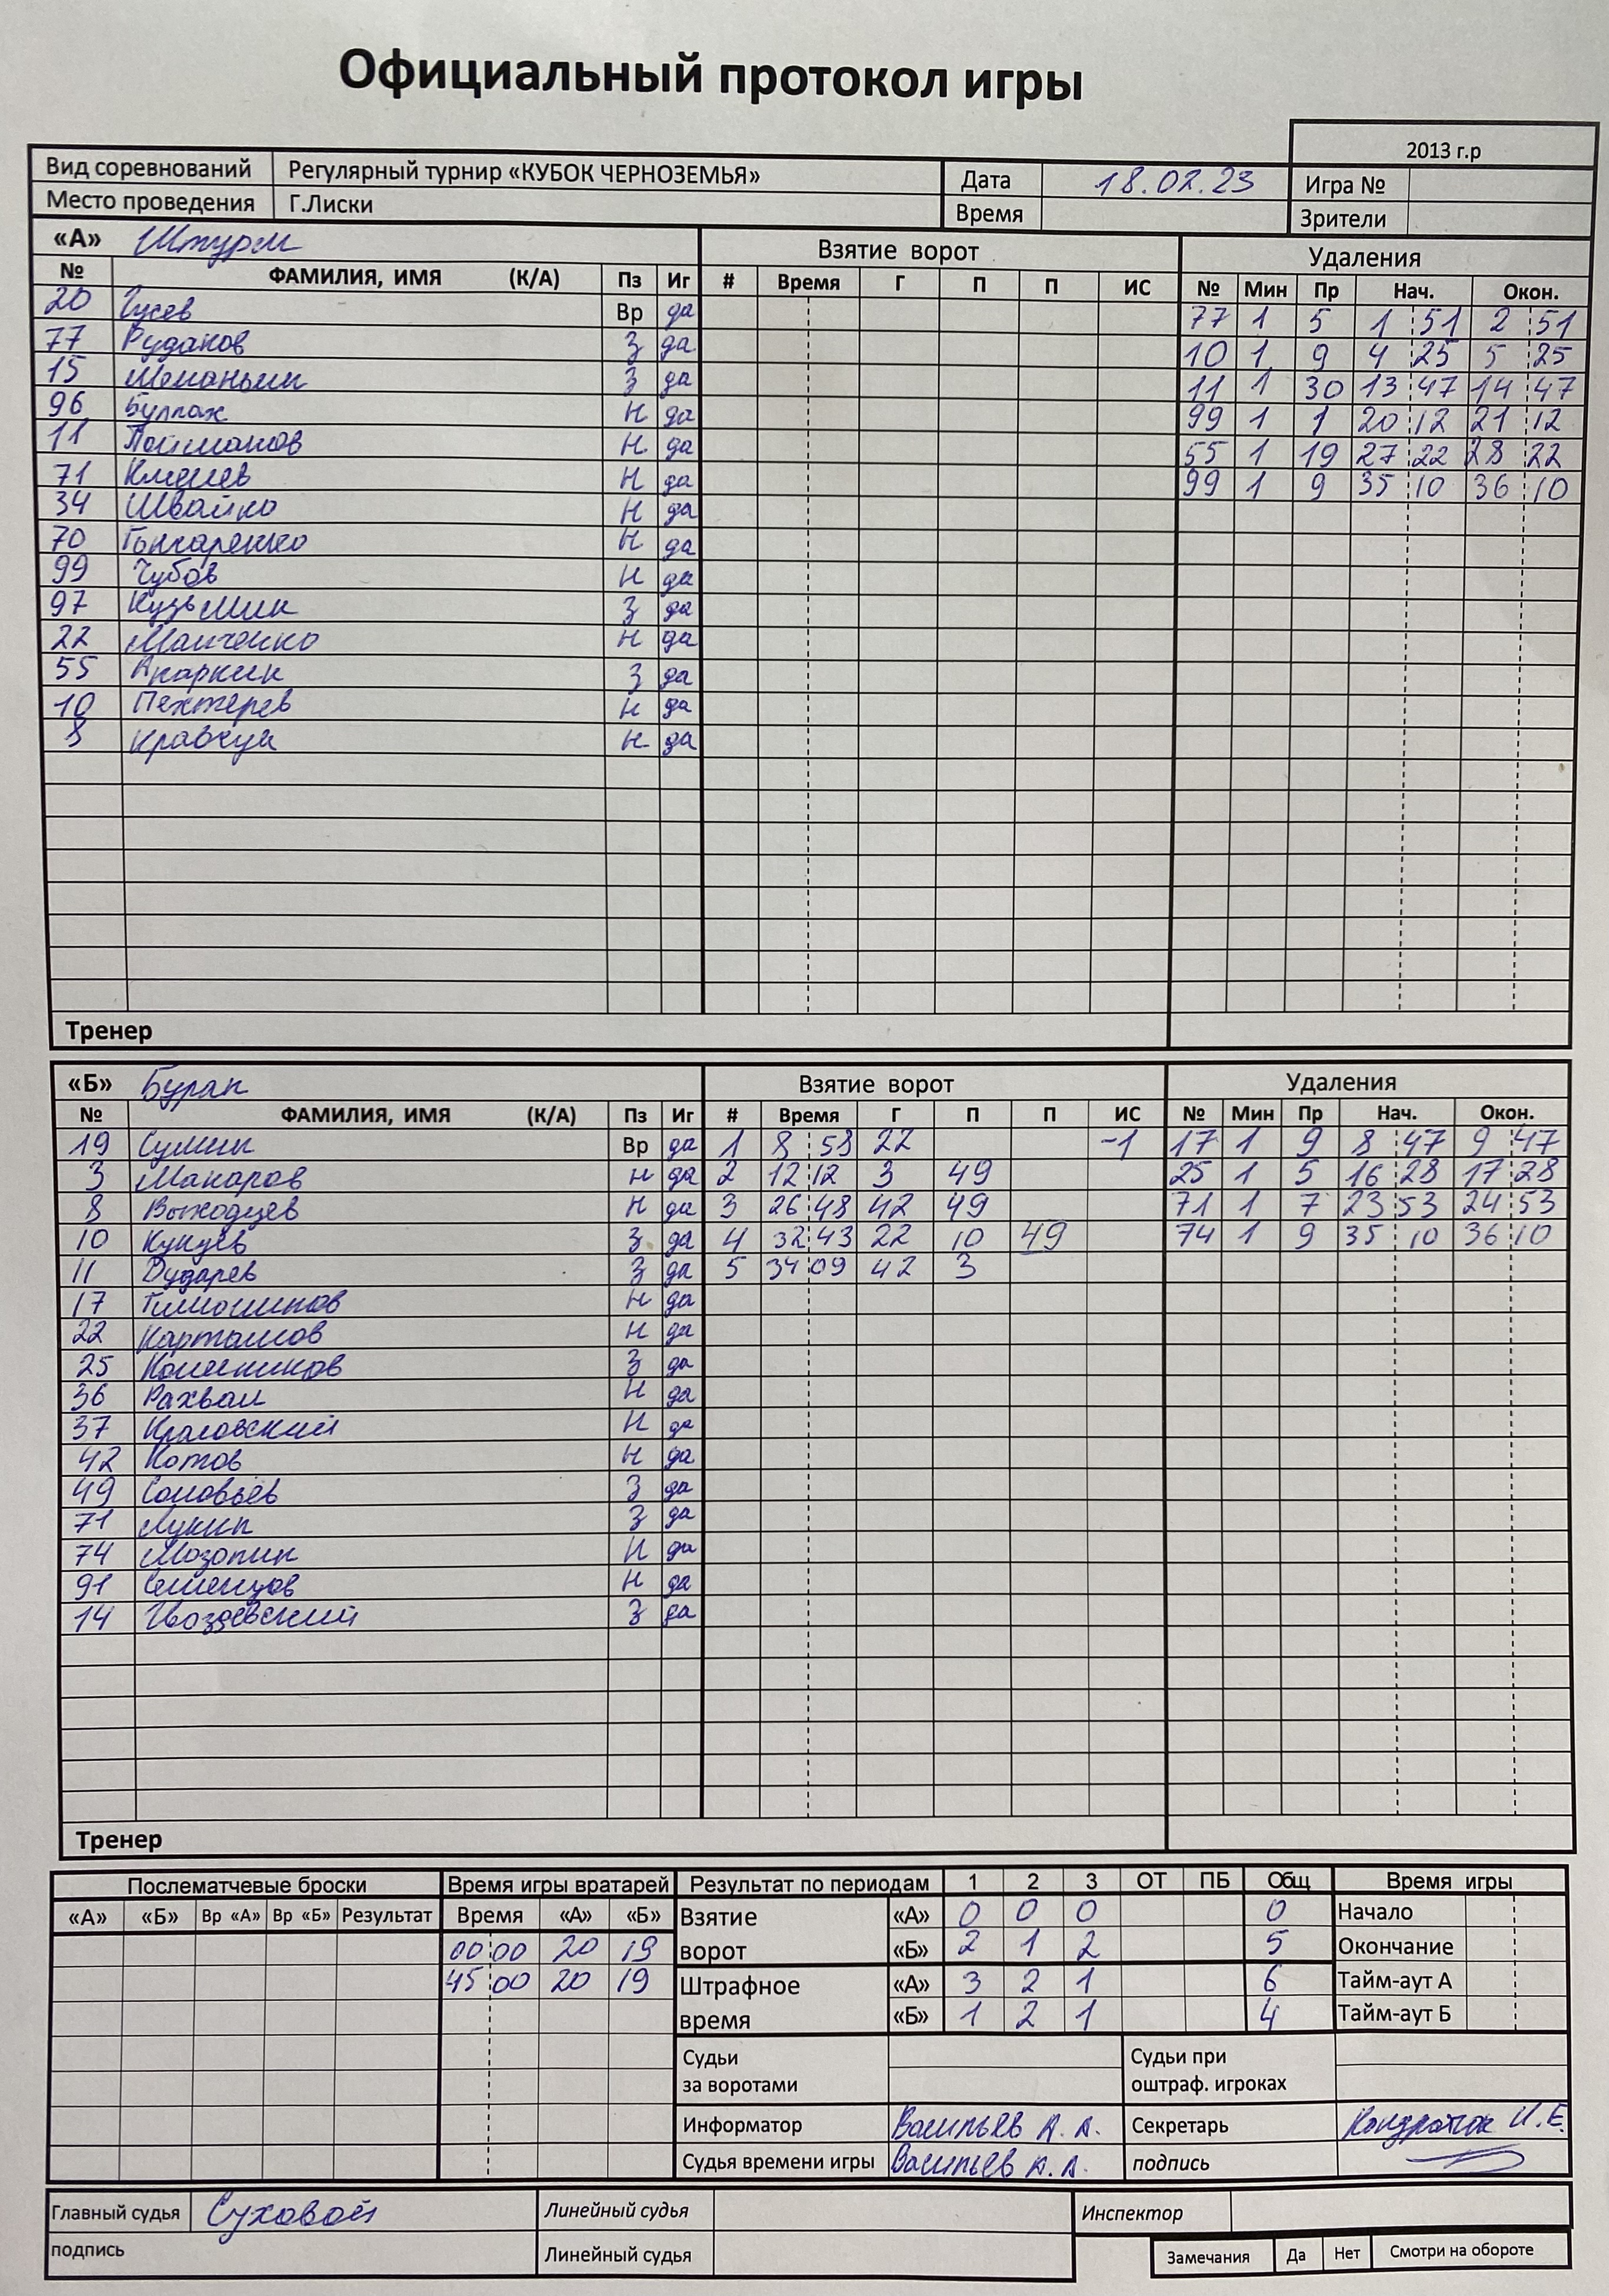 Официальный протокол игры
2013 г.р
Вид соревнований Регулярный турнир «КУБОК ЧЕРНОЗЕМЬЯ» Дата 18.02.23 Игра №
Место проведения Г.Лиски Время Зрители
«А» Штурм Взятие ворот Удаления
№ ФАМИЛИЯ, ИМЯ (К/А) Пз Иг # Время Г П П ИС № Мин Пр Нач. Окон.
20 Гусев Вр да 77 1 5 1 51 2 51
77 Рудаков З да 10 1 9 4 25 5 25
15 З да 11 1 30 13 47 14 47
96 Булпах Н да 99 1 1 20 12 21 12
11 Пойманов Н да 55 1 19 27 22 28 22
71 Н да 99 1 9 35 10 36 10
34 Швайко Н да
70 Гончаренко Н да
99 Чубов Н да
97 Кузьмин З да
22 Н да
55 Апаркин З да
10 Пехтерев Н да
8 Кравчук Н да
Тренер
«Б» Буран Взятие ворот Удаления
№ ФАМИЛИЯ, ИМЯ (К/А) Пз Иг # Время Г П П ИС № Мин Пр Нач. Окон.
19 Сумин Вр да 1 8 58 22 -1 17 1 9 8 47 9 47
3 Макаров Н да 2 12 12 3 49 25 1 5 16 28 17 28
8 Выходцев Н да 3 26 48 42 49 71 1 7 23 53 24 53
10 Кунцев З да 4 32 43 22 10 49 74 1 9 35 10 36 10
11 Дударев З да 5 34 09 42 3
17 Тимошинов Н да
22 Карташов Н да
25 З да
36 Рахвал Н да
37 Н да
42 Котов Н да
49 Соловьёв З да
71 Лукин З да
74 Мозолин Н да
91 Семенцов Н да
14 Гвоздевский З да
Тренер
Послематчевые броски Время игры вратарей Результат по периодам 1 2 3 ОТ ПБ Общ Время игры
«А» «Б» Вр «А» Вр «Б» Результат Время «А» «Б» Взятие ворот «А» 0 0 0 0 Начало
00 00 20 19 «Б» 2 1 2 5 Окончание
45 00 20 19 Штрафное время «А» 3 2 1 6 Тайм-аут А
«Б» 1 2 1 4 Тайм-аут Б
Судьи за воротами Судьи при оштраф. игроках
Информатор Васильев А. А. Секретарь И.Е.
Судья времени игры Васильев А. А. подпись
Главный судья Суховой Линейный судья Инспектор
подпись Линейный судья Замечания Да Нет Смотри на обороте